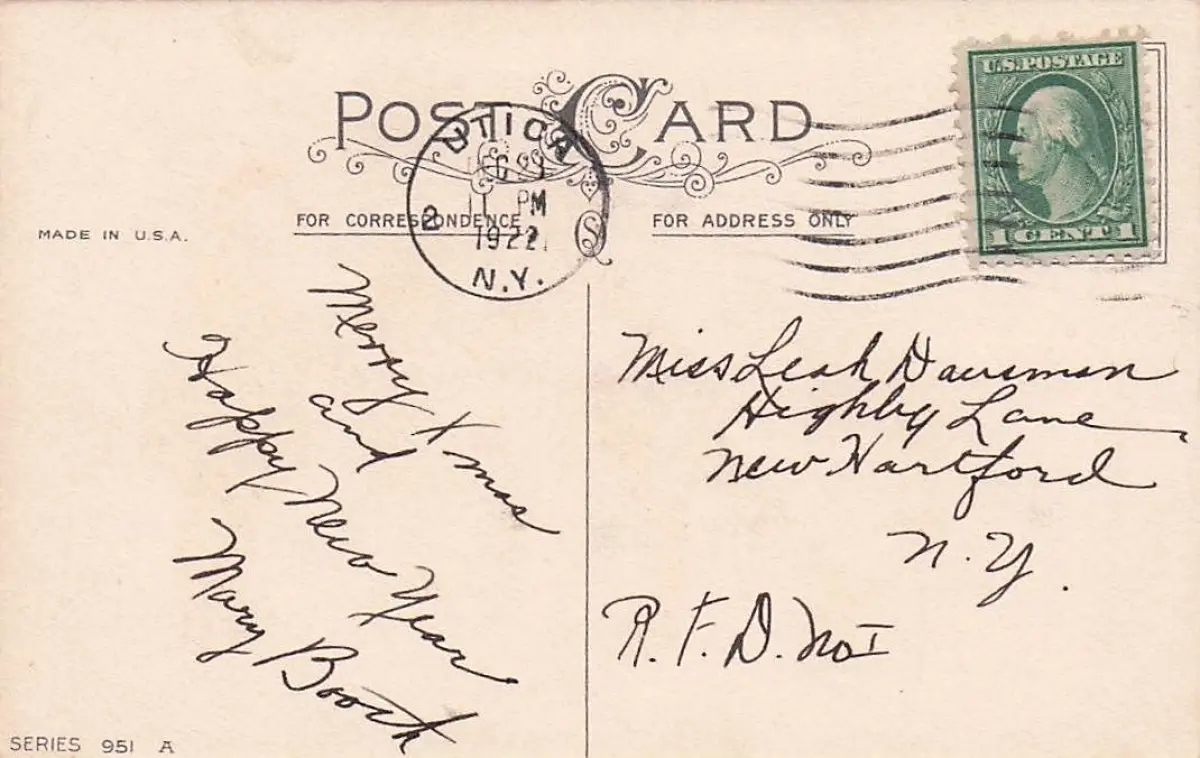 POST CARD
U.S. POSTAGE
1 CENT 1
UTICA
DEC 23
11 PM
2
1922
N.Y.
S
FOR CORRESPONDENCE
FOR ADDRESS ONLY
MADE IN U.S.A.
Merry Xmas
and
Happy New Year
Mary Booth
Miss Leah Dausman
Highby Lane
New Hartford
N.Y.
R.F.D. No 1
SERIES 951 A